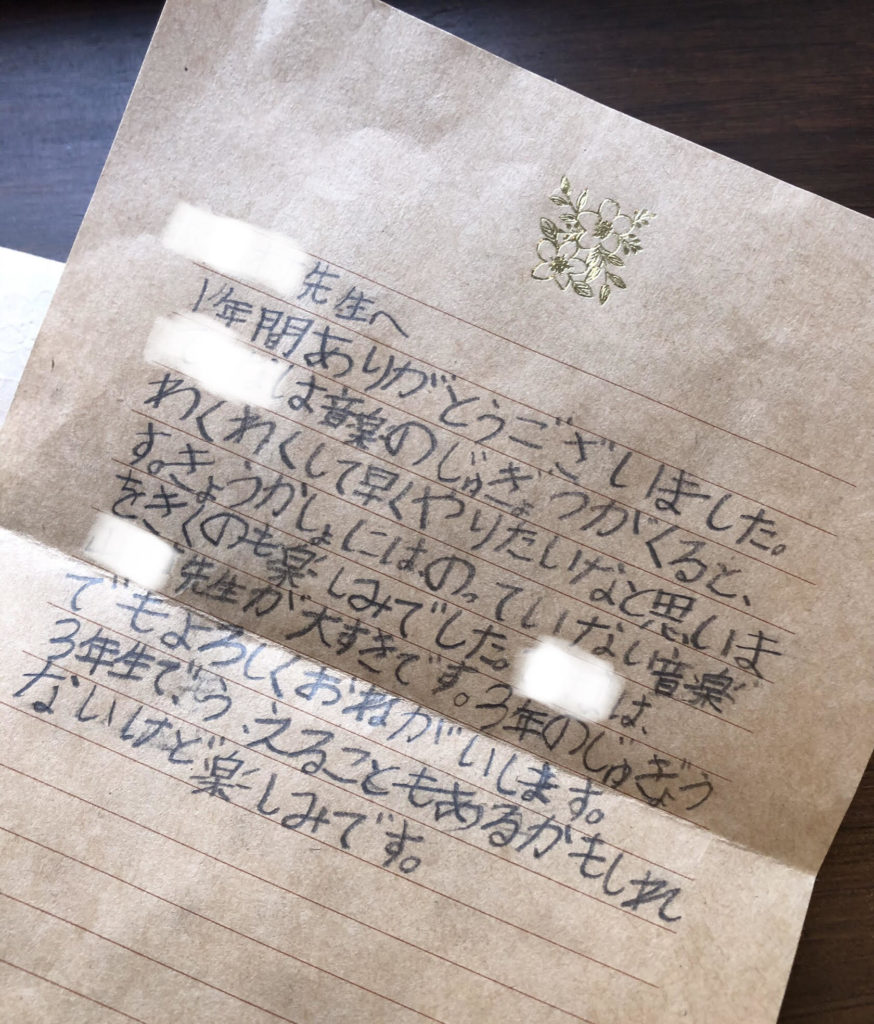 先生へ
1年間ありがとうございました。
は音楽のじゅぎょうがくると、
わくわくして早くやりたいなと思いま
す。きょうかしょにはのっていない音楽
をきくのも楽しみでした。は、
先生が大すきです。3年のじゅぎょう
でもよろしくおねがいします。
3年生で、う、えることもあるかもしれ
ないけど楽しみです。